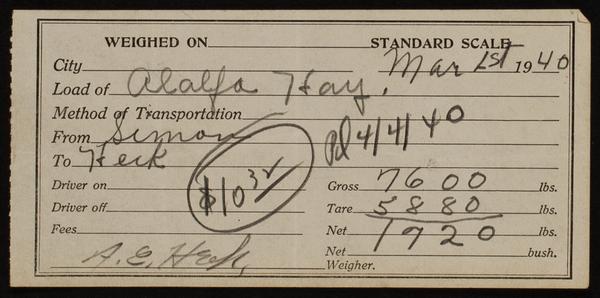 WEIGHED ON STANDARD SCALE
City Mar 1st 1940
Load of Alalfa Hay.
Method of Transportation
From Simon
Pd 4/4/40
To Heck
Driver on
$10 32
Gross 7600 lbs.
Driver off
Tare 5880 lbs.
Fees
Net 1720 lbs.
Net bush.
A. E. Heck,
Weigher.